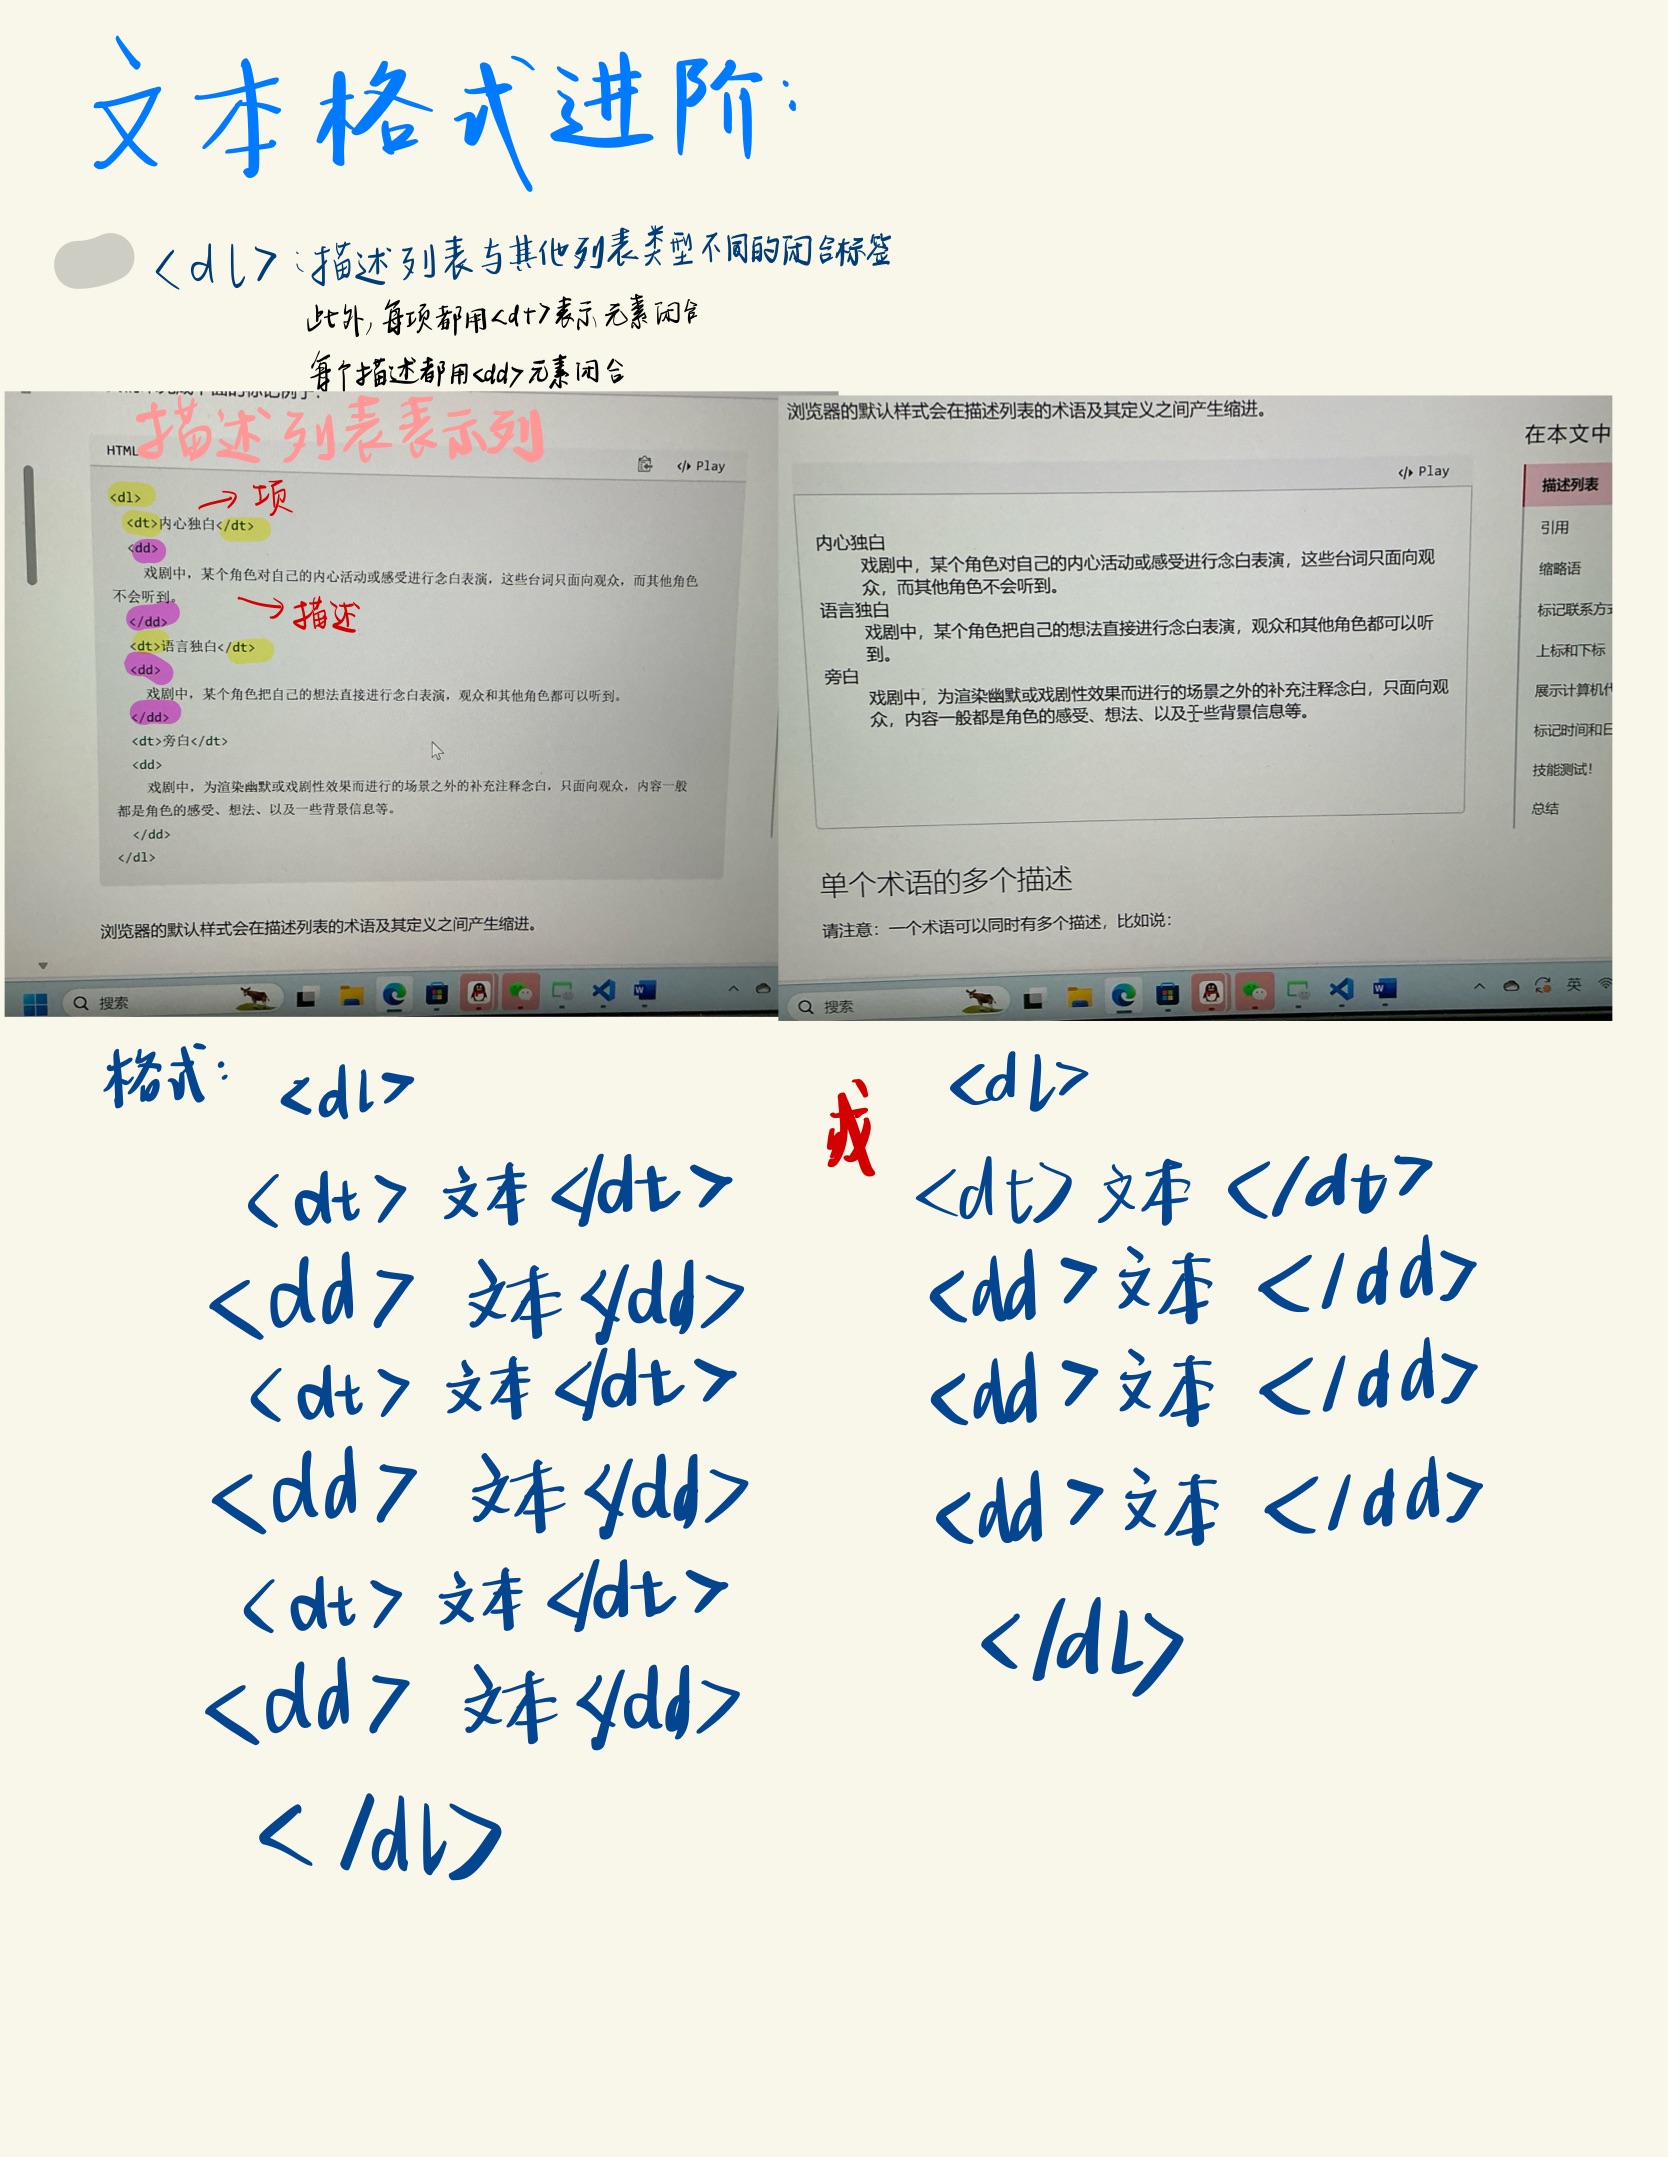 文本格式进阶:
<dl>:描述列表与其他列表类型不同的闭合标签
此外,每项都用<dt>表示元素闭合
每个描述都用<dd>元素闭合
描述列表表示列
HTML
Play
<dl>
→项
<dt>内心独白</dt>
<dd>
戏剧中，某个角色对自己的内心活动或感受进行念白表演，这些台词只面向观众，而其他角色
不会听到。
→描述
</dd>
<dt>语言独白</dt>
<dd>
戏剧中，某个角色把自己的想法直接进行念白表演，观众和其他角色都可以听到。
</dd>
<dt>旁白</dt>
<dd>
戏剧中，为渲染幽默或戏剧性效果而进行的场景之外的补充注释念白，只面向观众，内容一般
都是角色的感受、想法、以及一些背景信息等。
</dd>
</dl>
浏览器的默认样式会在描述列表的术语及其定义之间产生缩进。
搜索
浏览器的默认样式会在描述列表的术语及其定义之间产生缩进。
Play
内心独白
戏剧中，某个角色对自己的内心活动或感受进行念白表演，这些台词只面向观
众，而其他角色不会听到。
语言独白
戏剧中，某个角色把自己的想法直接进行念白表演，观众和其他角色都可以听
到。
旁白
戏剧中，为渲染幽默或戏剧性效果而进行的场景之外的补充注释念白，只面向观
众，内容一般都是角色的感受、想法、以及一些背景信息等。
单个术语的多个描述
请注意：一个术语可以同时有多个描述，比如说：
在本文中
描述列表
引用
缩略语
标记联系方式
上标和下标
展示计算机代
标记时间和日
技能测试！
总结
搜索
英
格式:
<dl>
<dt> 文本 </dt>
<dd> 文本 </dd>
<dt> 文本 </dt>
<dd> 文本 </dd>
<dt> 文本 </dt>
<dd> 文本 </dd>
</dl>
或
<dl>
<dt> 文本 </dt>
<dd> 文本 </dd>
<dd> 文本 </dd>
<dd> 文本 </dd>
</dl>